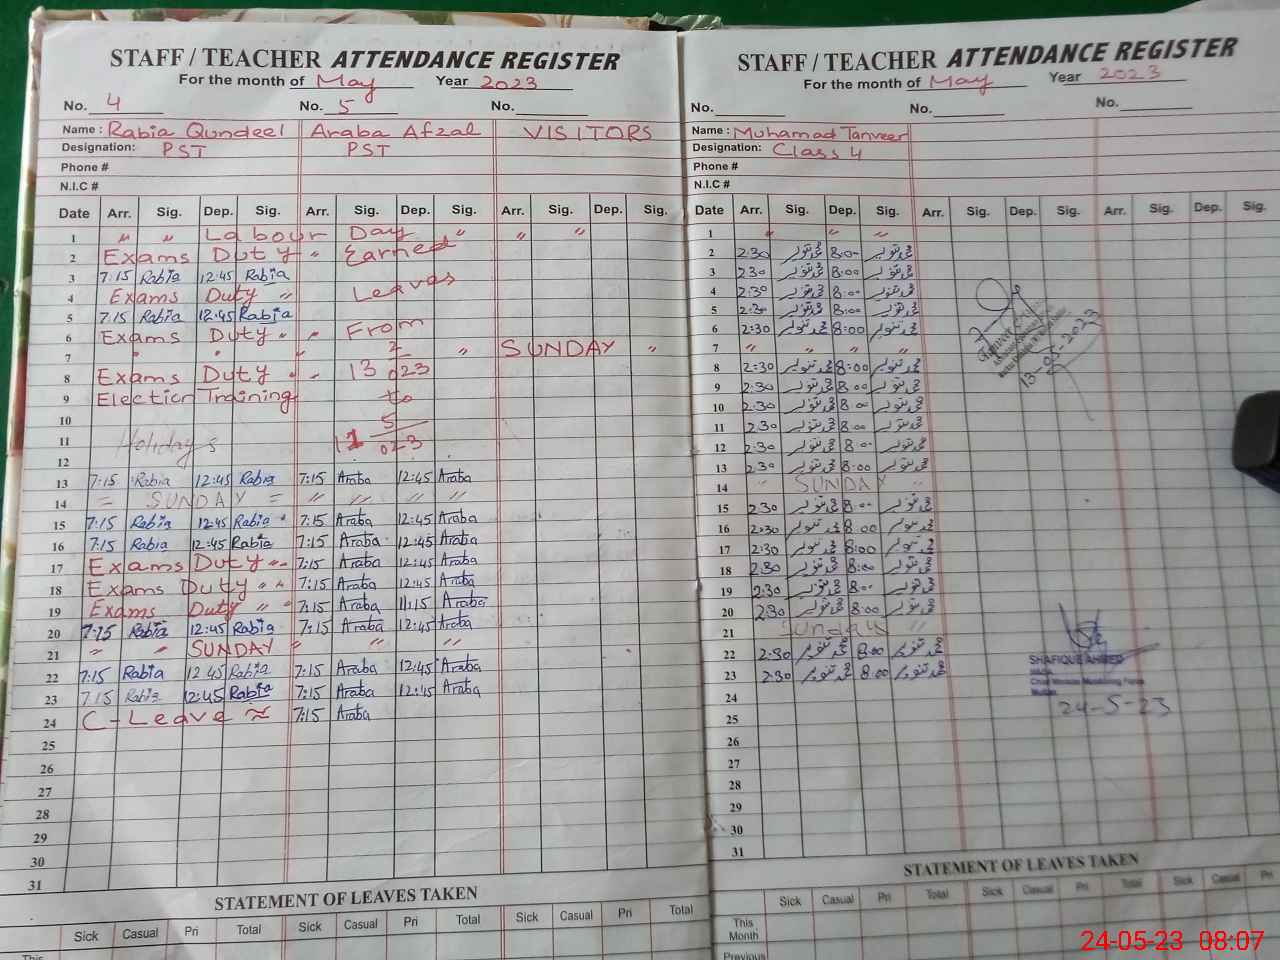 STAFF / TEACHER ATTENDANCE REGISTER
For the month of May Year 2023
No. 4 No. 5 No.
Name : Rabia Qundeel Araba Afzal VISITORS
Designation: PST PST
Phone #
N.I.C #
Date Arr. Sig. Dep. Sig. Arr. Sig. Dep. Sig. Arr. Sig. Dep. Sig.
1 " " Labour Day " " "
2 Exams Duty " Earned
3 7:15 Rabia 12:45 Rabia
4 Exams Duty " Leaves
5 7:15 Rabia 12:45 Rabia
6 Exams Duty " " From
7 " " " 2 " SUNDAY "
8 Exams Duty " " 13 023
9 Election Training to
10 5
11 Holidays 11 023
12
13 7:15 Rabia 12:45 Rabia 7:15 Araba 12:45 Araba
14 = SUNDAY = " " " "
15 7:15 Rabia 12:45 Rabia 7:15 Araba 12:45 Araba
16 7:15 Rabia 12:45 Rabia 7:15 Araba 12:45 Araba
17 Exams Duty " 7:15 Araba 12:45 Araba
18 Exams Duty " " 7:15 Araba 12:45 Araba
19 Exams Duty " 7:15 Araba 11:15 Araba
20 7:15 Rabia 12:45 Rabia 7:15 Araba 12:45 Araba
21 " " SUNDAY " " "
22 7:15 Rabia 12 45 Rabia 7:15 Araba 12:45 Araba
23 7 15 Rabia 12:45 Rabia 7:15 Araba 12:45 Araba
24 C - Leave 7:15 Araba
25
26
27
28
29
30
31
STATEMENT OF LEAVES TAKEN
Sick Casual Pri Total Sick Casual Pri Total
This
STAFF / TEACHER ATTENDANCE REGISTER
For the month of May Year 2023
No. No. No.
Name : Muhamad Tanveer
Designation: Class 4
Phone #
N.I.C #
Date Arr. Sig. Dep. Sig. Arr. Sig. Dep. Sig. Arr. Sig. Dep. Sig.
1 " " "
2 2:30 محمد تنویر 8:00 محمد تنویر
3 2:30 محمد تنویر 8:00 محمد تنویر
4 2:30 محمد تنویر 8:00 محمد تنویر
5 2:30 محمد تنویر 8:00 محمد تنویر
6 2:30 محمد تنویر 8:00 محمد تنویر
7 " " " "
8 2:30 محمد تنویر 8:00 محمد تنویر
9 2:30 محمد تنویر 8:00 محمد تنویر
10 2:30 محمد تنویر 8:00 محمد تنویر
11 2:30 محمد تنویر 8:00 محمد تنویر
12 2:30 محمد تنویر 8:00 محمد تنویر
13 2:30 محمد تنویر 8:00 محمد تنویر
14 " SUNDAY "
15 2:30 محمد تنویر 8:00 محمد تنویر
16 2:30 محمد تنویر 8:00 محمد تنویر
17 2:30 محمد تنویر 8:00 محمد تنویر
18 2:30 محمد تنویر 8:00 محمد تنویر
19 2:30 محمد تنویر 8:00 محمد تنویر
20 2:30 محمد تنویر 8:00 محمد تنویر
21 Sunday "
22 2:30 محمد تنویر 8:00 محمد تنویر
23 2:30 محمد تنویر 8:00 محمد تنویر
24
25
26
27
28
29
30
31
13-05-2023
SHAFIQUE AHMED
24-5-23
STATEMENT OF LEAVES TAKEN
Sick Casual Pri Total Sick Casual Pri Total Sick Casual Pri
This Month
Previous
24-05-23 08:07